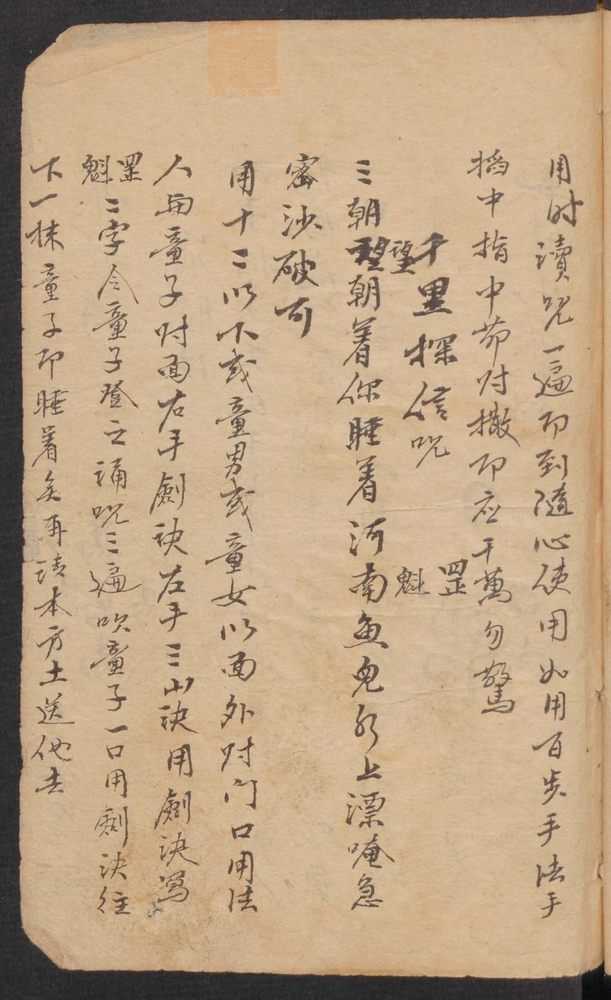 用时讀咒一遍即到隨心使用如用百步手法手
掐中指中节对撒即应千萬勿驚
千里探信咒
魁罡
三朝望朝着你睡着河南魚兒水上漂唵急
望
密沙破可
用十二以下或童男或童女以面外对门口用法
人与童子对面右手劍诀左手三山诀用劍诀寫
魁罡二字令童子登之诵咒三遍吹童子一口用劍诀往
下一抹童子即睡着矣再请本方土送他去